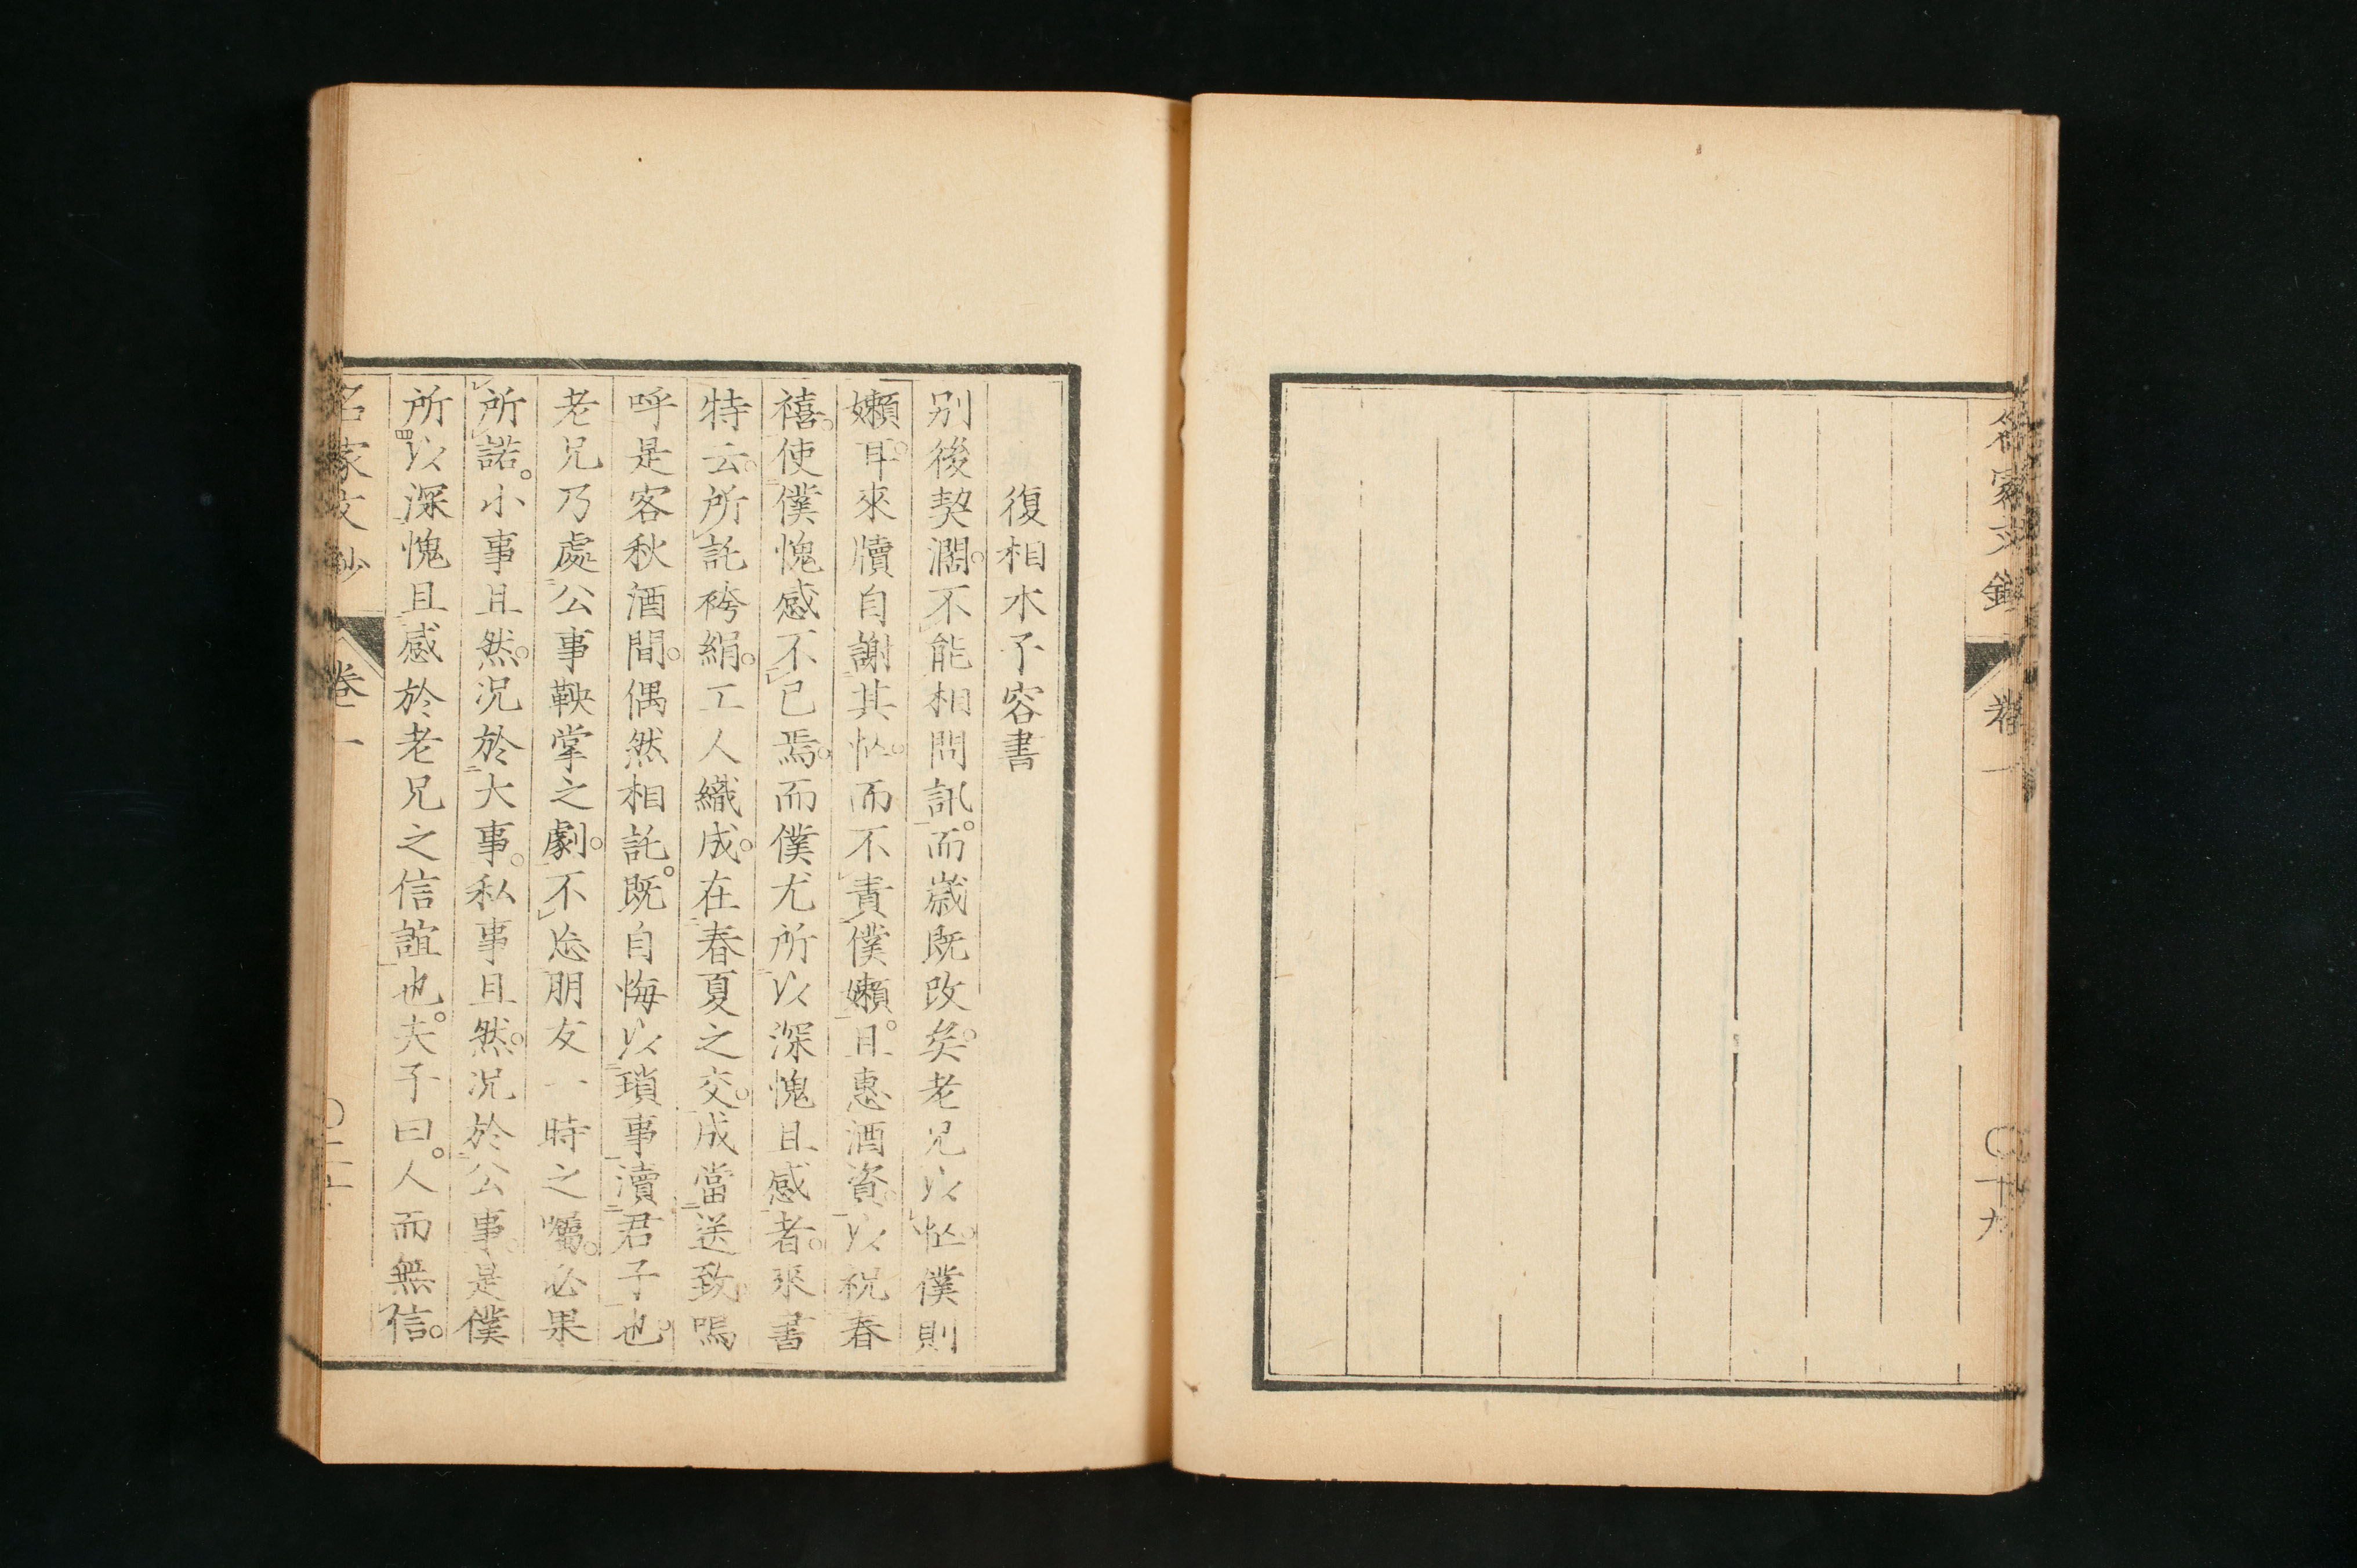 名家文鈔
卷一
〇十九
復相木子容書
別後契濶。不能相問訊。而歲既改矣。老兄以忙。僕則
嬾耳。來牘自謝其忙。而不責僕嬾。且惠酒資。以祝春
禧。使僕愧感不已焉。而僕尤所以深愧且感者。來書
特云。所託袴絹。工人織成。在春夏之交。成當送致。嗚
呼是客秋酒間。偶然相託。既自悔以瑣事瀆君子也。
老兄乃處公事鞅掌之劇。不忘朋友一時之囑。必果
所諾。小事且然。况於大事。私事且然。况於公事。是僕
所以深愧且感於老兄之信誼也。夫子曰。人而無信。
名家文鈔
卷一